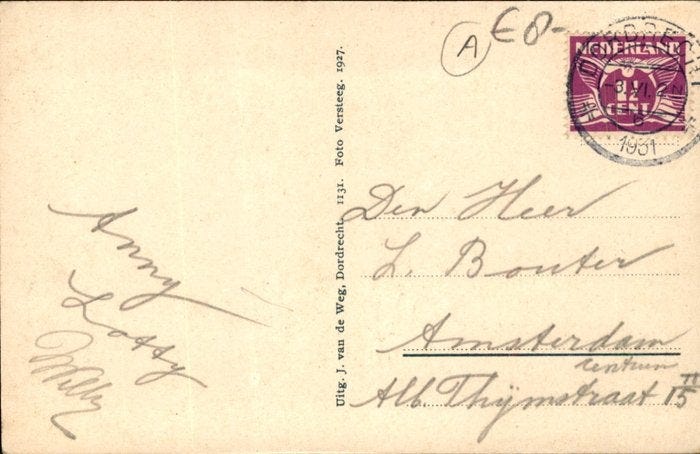 A
€ 8-
DORDRECHT
NEDERLAND
1½
CENT
1931
Anny
Lotty
Willy
Uitg. J. van de Weg, Dordrecht. 1131. Foto Versteeg. 1927.
Den Heer
L. Bouter
Amsterdam
Centrum
Alb. Thijmstraat 15 II